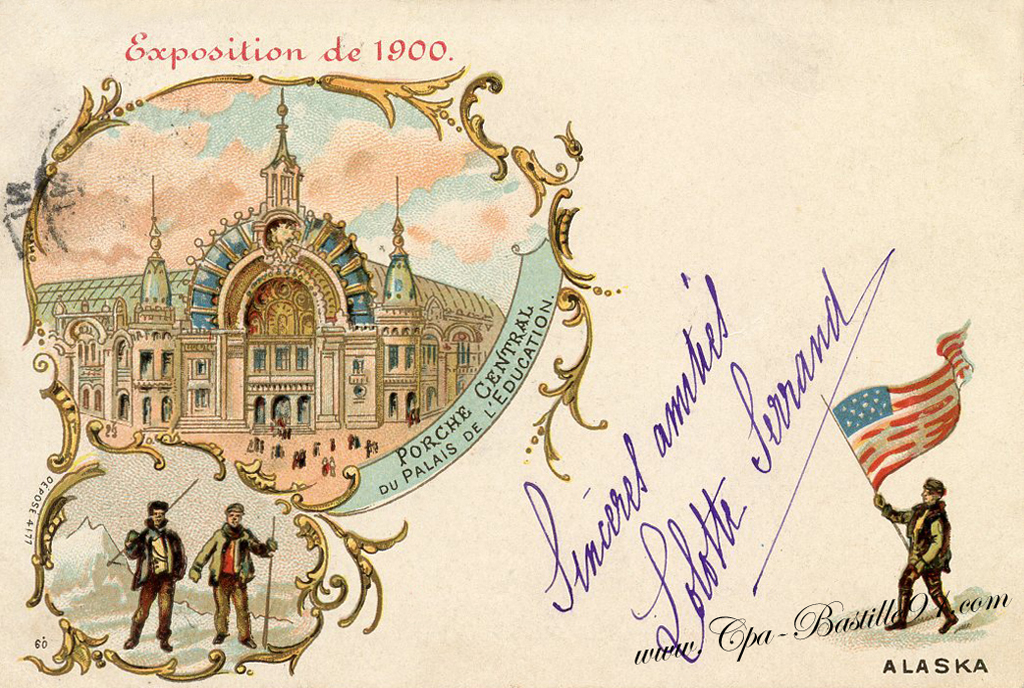 Exposition de 1900.
PORCHE CENTRAL
DU PALAIS DE L'ÉDUCATION.
DÉPOSÉ 4177
69.
Sincères amitiés
Lolotte Serrand
www.Cpa-Bastille91.com
ALASKA